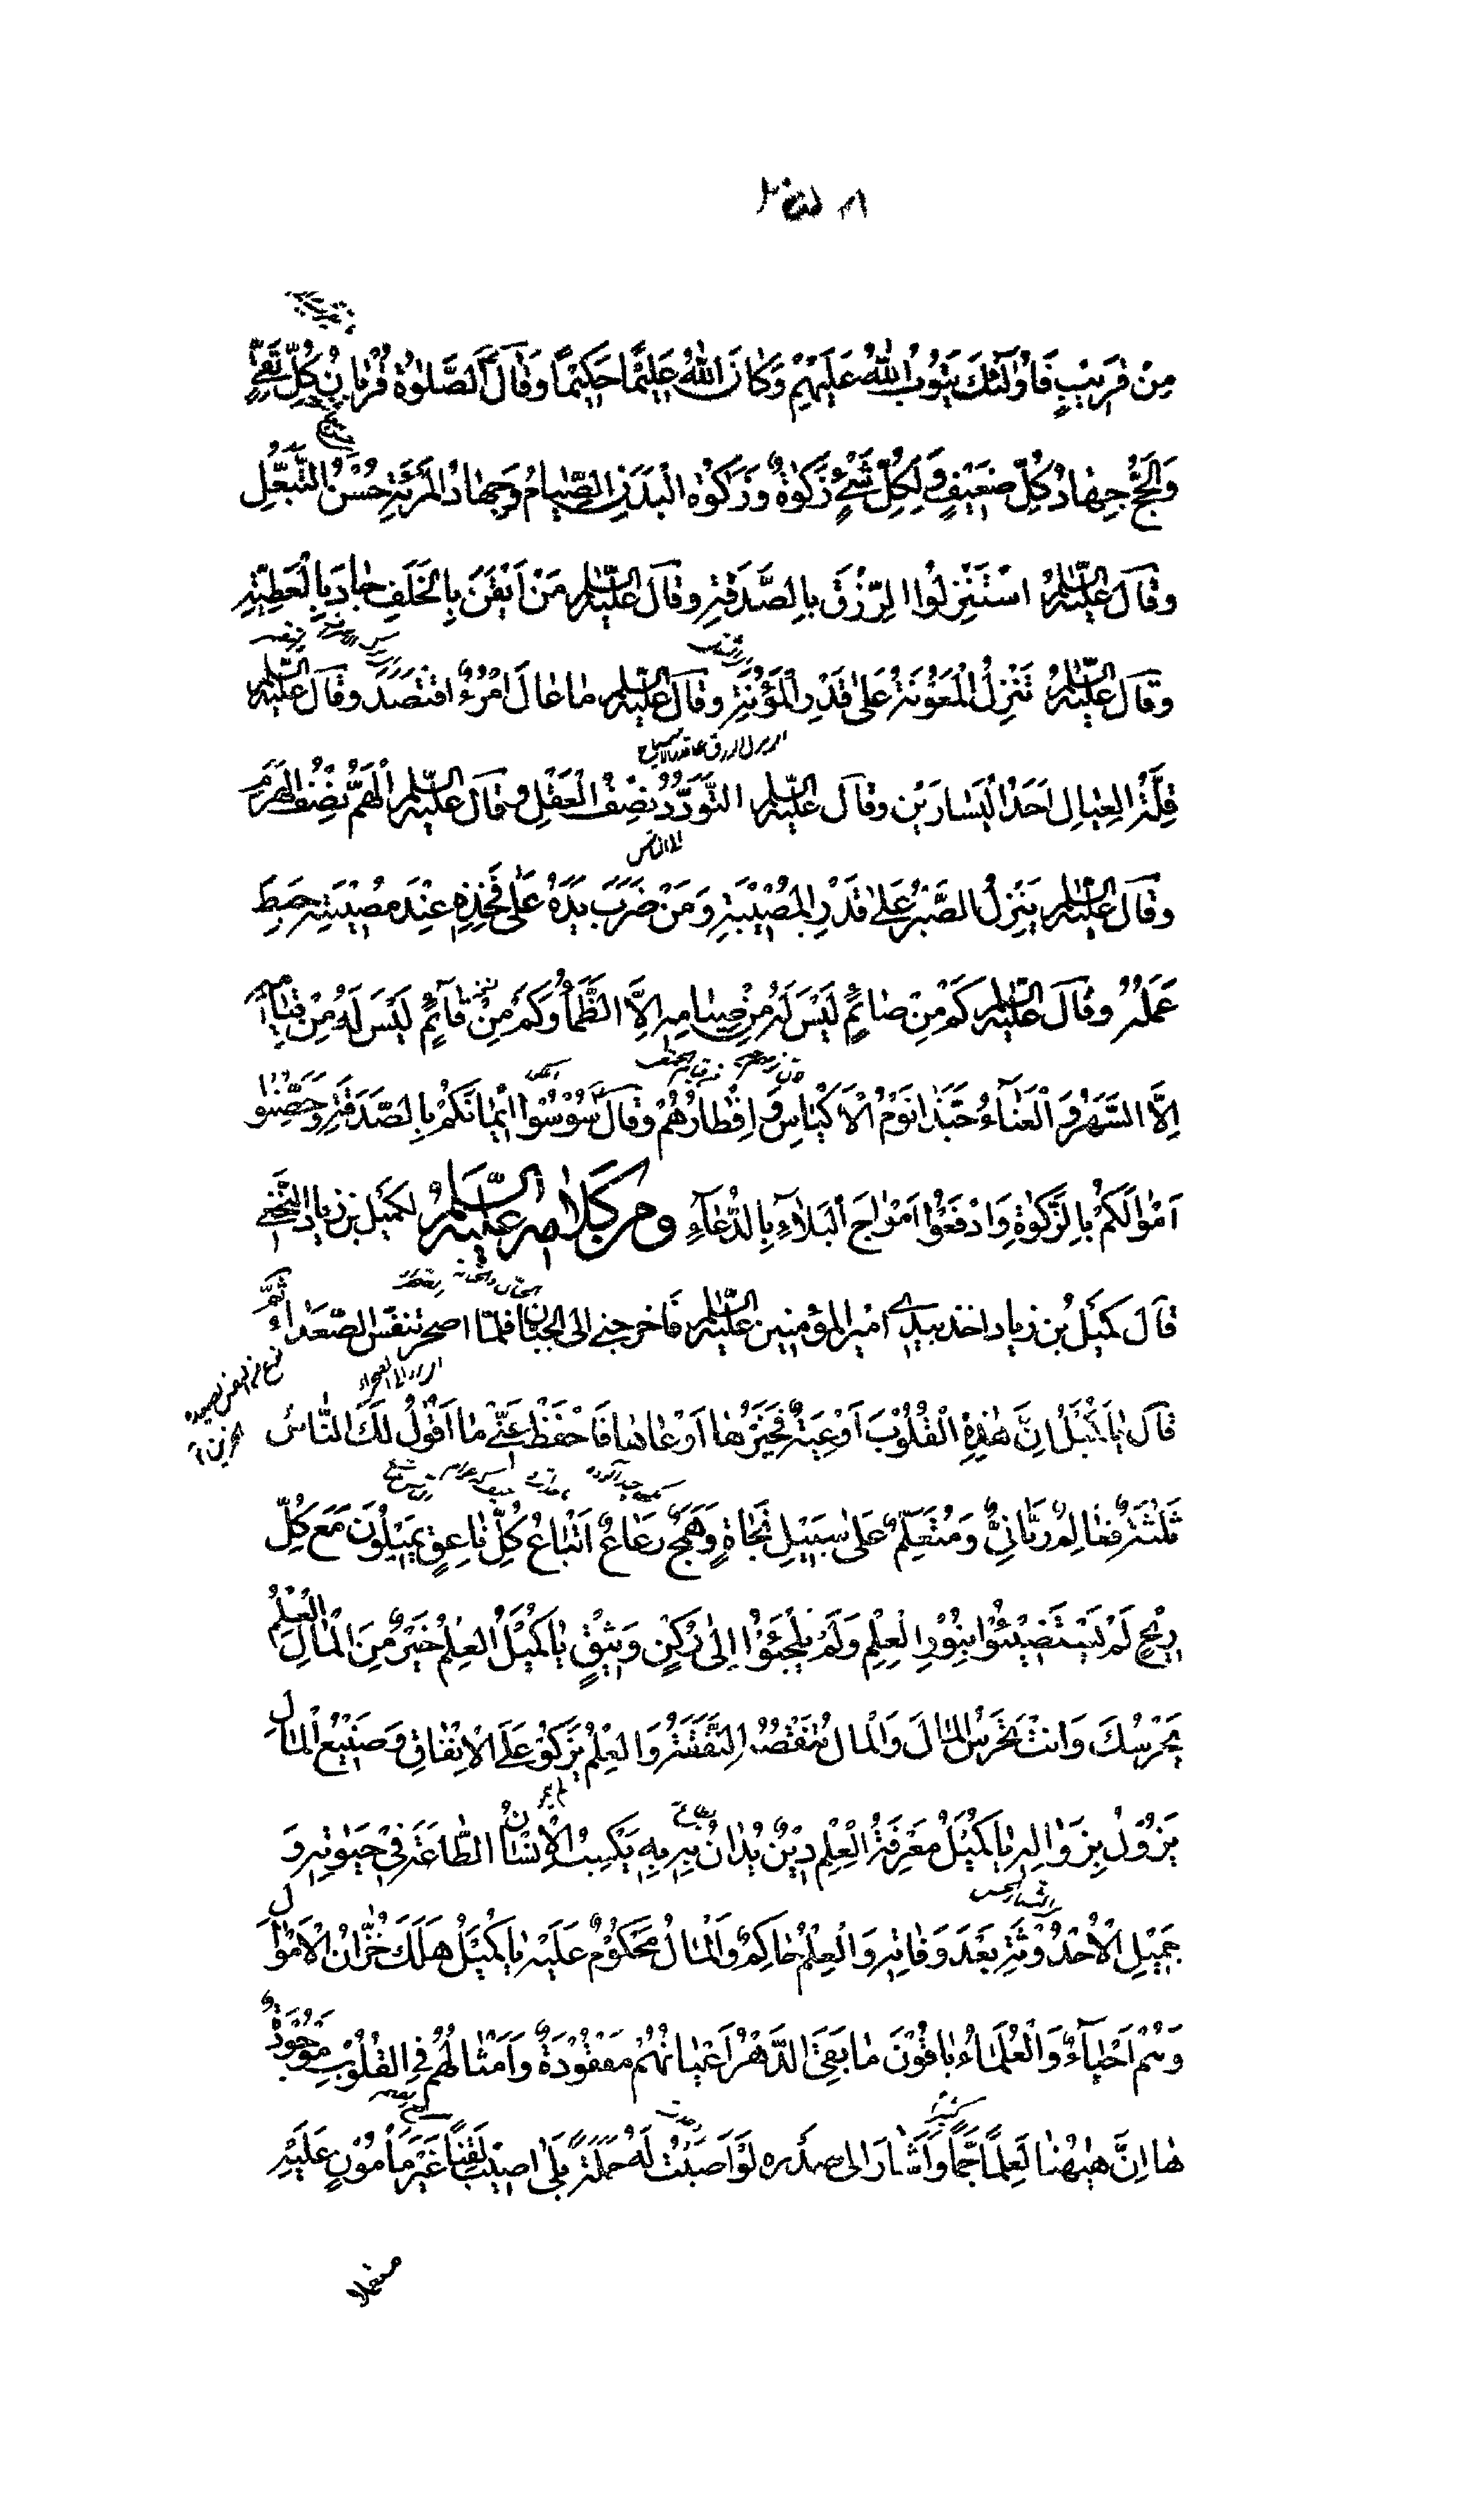 مِنْ قَرِيْبٍ فَاُولٰٓئِكَ يَتُوْبُ اللّٰهُ عَلَيْهِمْ وَكَانَ اللّٰهُ عَلِيْمًا حَكِيْمًا وَقَالَ ؑ اَلصَّلٰوةُ قُرْبَانُ كُلِّ تَقِيٍّ
وَالْحَجُّ جِهَادُ كُلِّ ضَعِيْفٍ وَلِكُلِّ شَيْءٍ زَكٰوةٌ وَزَكٰوةُ الْبَدَنِ الصِّيَامُ وَجِهَادُ الْمَرْئَةِ حُسْنُ التَّبَعُّلِ
وقَالَ عَلَيْهِ السَّلٰمُ اسْتَنْزِلُوا الرِّزْقَ بِالصَّدَقَةِ وقَالَ عَلَيْهِ السَّلٰمُ مَنْ اَيْقَنَ بِالْخَلَفِ جَادَ بِالْعَطِيَّةِ
وقَالَ عَلَيْهِ السَّلٰمُ تَنْزِلُ الْمَعُوْنَةُ عَلٰى قَدْرِ الْمَؤُنَةِ وقَالَ عَلَيْهِ السَّلٰمُ مَا عَالَ امْرُءٌ اقْتَصَدَ وقَالَ عَلَيْهِ السَّلٰمُ
قِلَّةُ الْعِيَالِ اَحَدُ الْيَسَارَيْنِ وقَالَ عَلَيْهِ السَّلٰمُ التَّوَدُّدُ نِصْفُ الْعَقْلِ وقَالَ عَلَيْهِ السَّلٰمُ اَلْهَمُّ نِصْفُ الْهَرَمِ
الى الناس
وقَالَ عَلَيْهِ السَّلٰمُ يَنْزِلُ الصَّبْرُ عَلٰى قَدْرِ الْمُصِيْبَةِ وَمَنْ ضَرَبَ يَدَهُ عَلٰى فَخِذِهِ عِنْدَ مُصِيْبَتِهِ حَبِطَ
عَمَلُهُ وقَالَ عَلَيْهِ السَّلٰمُ كَمْ مِنْ صَائِمٍ لَيْسَ لَهُ مِنْ صِيَامِهِ اِلَّا الظَّمَأُ وَكَمْ مِنْ قَآئِمٍ لَيْسَ لَهُ مِنْ قِيَامِهِ
اِلَّا السَّهَرُ وَ الْعَنَآءُ حَبَّذَا نَوْمُ الْاَكْيَاسِ وَ اِفْطَارُهُمْ وقَالَ ؑ سُوْسُوْا اِيْمَانَكُمْ بِالصَّدَقَةِ وَحَصِّنُوا
اَمْوَالَكُمْ بِالزَّكٰوةِ وَادْفَعُوْا اَمْوَاجَ الْبَلَآءِ بِالدُّعَآءِ ومن كلامه عليه السَّلَمُ لكميل بن زياد النَّخَعِي
قال كُمَيْلُ بن زياد اخذ بيدي امير المؤمنين عليه السَّلٰمُ فَاخرجني الى الجبان فلمّا اصحر تنفّس الصّعداء ثُمَّ
قَالَ يَا كُمَيْلُ اِنَّ هٰذِهِ الْقُلُوْبَ اَوْعِيَةٌ فَخَيْرُهَا اَوْعَاهَا فَاحْفَظْ عَنِّي مَا اَقُوْلُ لَكَ النَّاسُ
ثَلٰثَةٌ فَعَالِمٌ رَبَّانِيٌّ وَمُتَعَلِّمٌ عَلٰى سَبِيْلِ نَجَاةٍ وَهَمَجٌ رَعَاعٌ اَتْبَاعُ كُلِّ نَاعِقٍ يَمِيْلُوْنَ مَعَ كُلِّ
رِيْحٍ لَمْ يَسْتَضِيْئُوْا بِنُوْرِ الْعِلْمِ وَلَمْ يَلْجَئُوْا اِلٰى رُكْنٍ وَثِيْقٍ يَا كُمَيْلُ الْعِلْمُ خَيْرٌ مِنَ الْمَالِ الْعِلْمُ
يَحْرُسُكَ وَاَنْتَ تَحْرُسُ الْمَالَ وَالْمَال تَنْقُصُهُ النَّفَقَةُ وَالْعِلْمُ يَزْكُوْ عَلَى الْاِنْفَاقِ وَصَنِيْعُ الْمَالِ
يَزُوْلُ بِزَوَالِهِ يَا كُمَيْلُ مَعْرِفَةُ الْعِلْمِ دِيْنٌ يُدَانُ بِهِ بِهِ يَكْسِبُ الْاِنْسَانُ الطَّاعَةَ فِيْ حَيٰوتِهِ وَ
جَمِيْلَ الْاُحْدُوْثَةِ بَعْدَ وَفَاتِهِ وَالْعِلْمُ حَاكِمٌ وَالْمَالُ مَحْكُوْمٌ عَلَيْهِ يَا كُمَيْلُ هَلَكَ خُزَّانُ الْاَمْوَالِ
وَهُمْ اَحْيَآءٌ وَالْعُلَمَاءُ بَاقُوْنَ مَا بَقِيَ الدَّهْرُ اَعْيَانُهُمْ مَفْقُوْدَةٌ وَاَمْثَالُهُمْ فِي الْقُلُوْبِ مَوْجُوْدَةٌ
هَا اِنَّ هٰيهُنَا لَعِلْمًا جَمًّا وَاَشَارَ الى صدره لَوْ اَصَبْتُ لَهُ حَمَلَةً بَلٰى اصبت لَقِنًا غَيْرَ مَأمُوْنٍ عَلَيْهِ